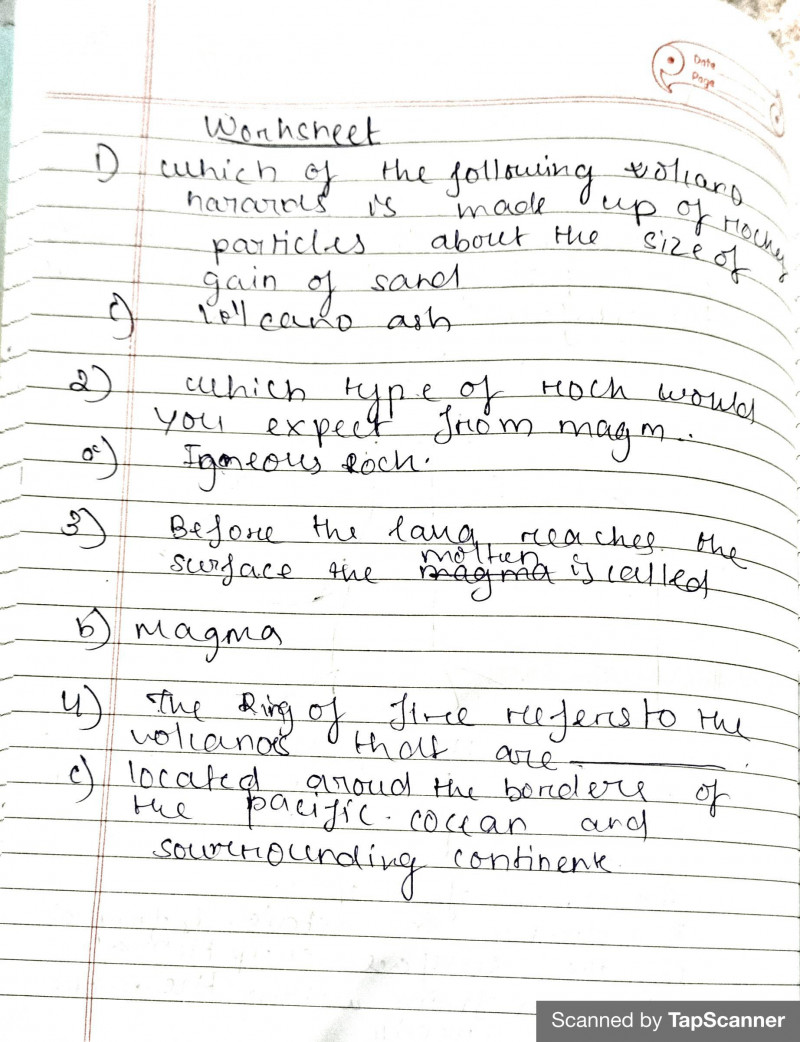 Date
Page
Worksheet
1) which of the following volcano
hazards is made up of rocky
particles about the size of
gain of sand
c) Volcano ash
2) which type of rock would
you expect from magm..
a) Igneous rock.
3) Before the lava reaches the
surface the molten magma is called
b) magma
4) The Ring of fire refers to the
volcanoes that are ________.
c) located aroud the borders of
the pacific. ocean and
sourrounding continent
Scanned by TapScanner